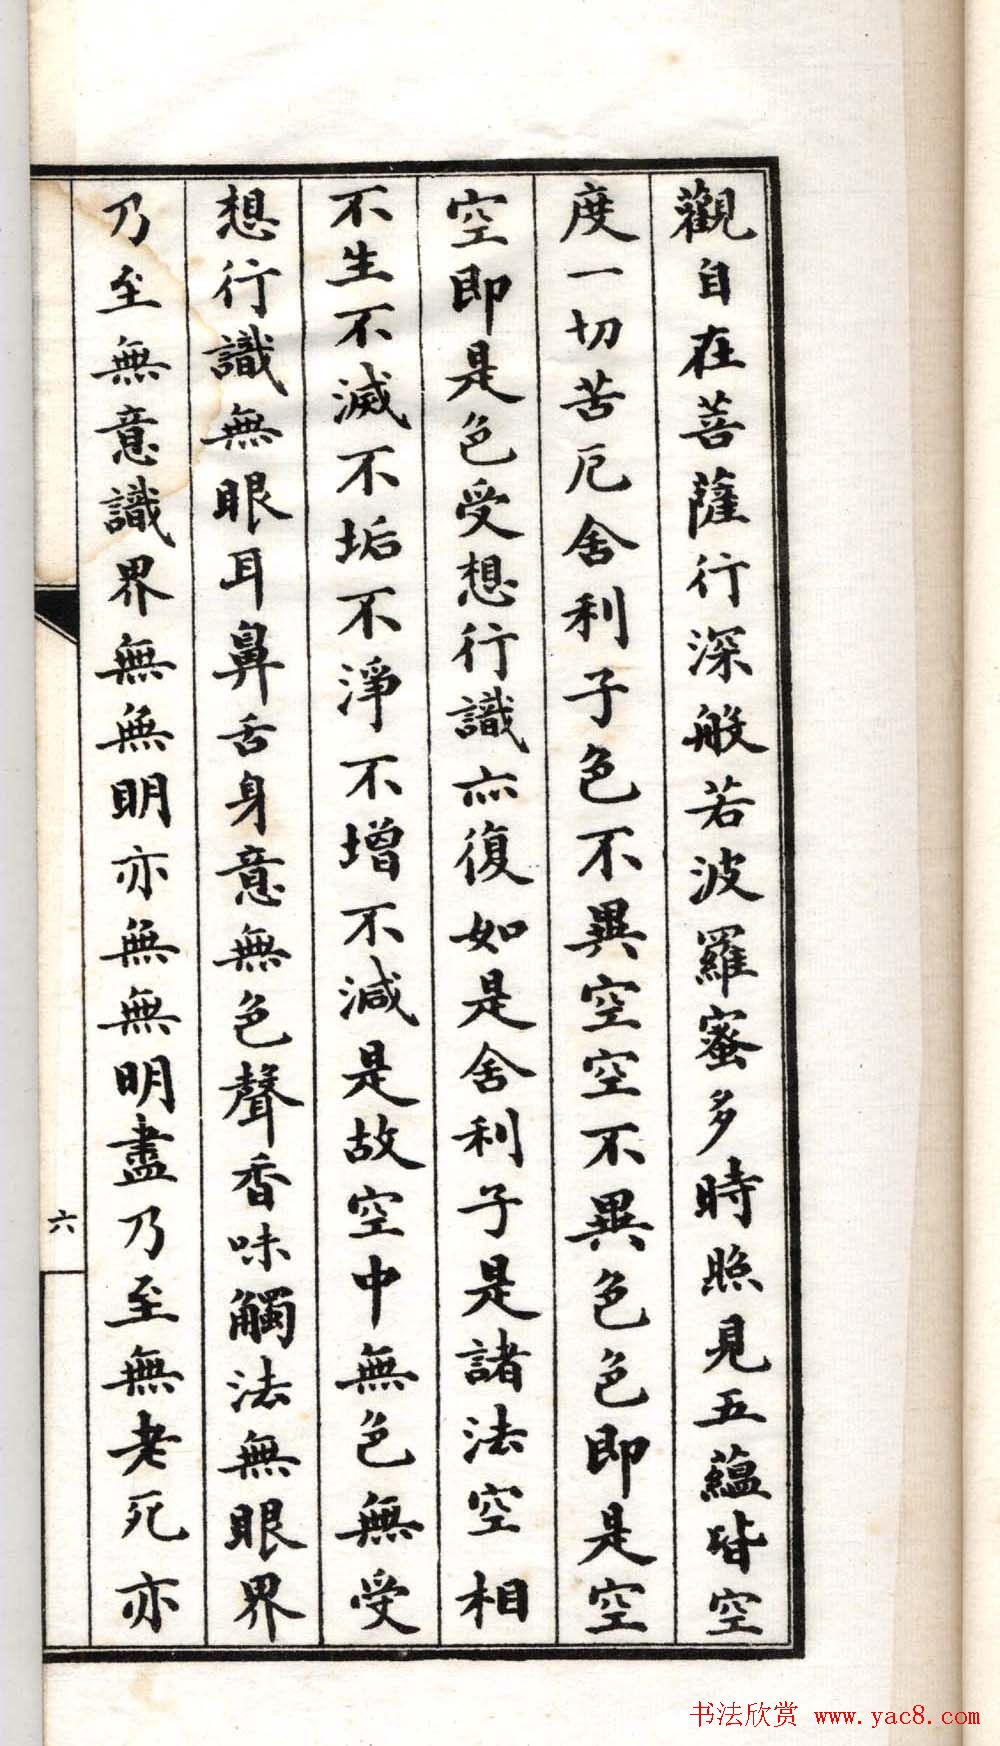 觀自在菩薩行深般若波羅蜜多時照見五蘊皆空
度一切苦厄舍利子色不異空空不異色色即是空
空即是色受想行識亦復如是舍利子是諸法空相
不生不滅不垢不淨不增不減是故空中無色無受
想行識無眼耳鼻舌身意無色聲香味觸法無眼界
乃至無意識界無無明亦無無明盡乃至無老死亦
六
书法欣赏 www.yac8.com